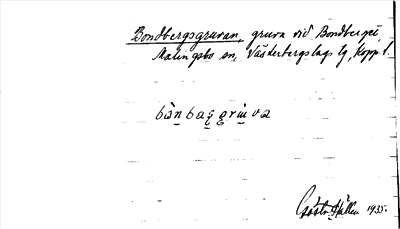 Bondbergsgruvan, gruva vid Bondberget,
Malingsbo sn, Västerbergslags tg, Kopp. l.
bànbasgruva
Gösta 1935.